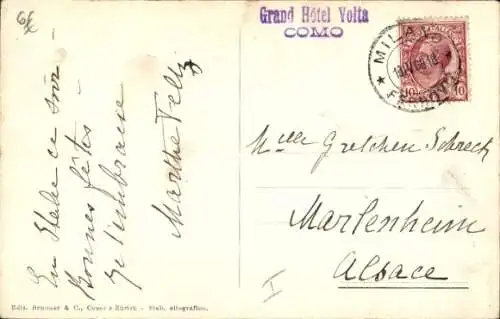 Grand Hôtel Volta
COMO
MILANO
FERROVIA
10 10
En Italie ce soir
Bonnes fêtes
Je t'embrasse
Marthe
Mlle Gretchen Schreck
Marlenheim
Alsace
I
Edit. Brunner & C., Como e Zurich - Stab. eliografico.